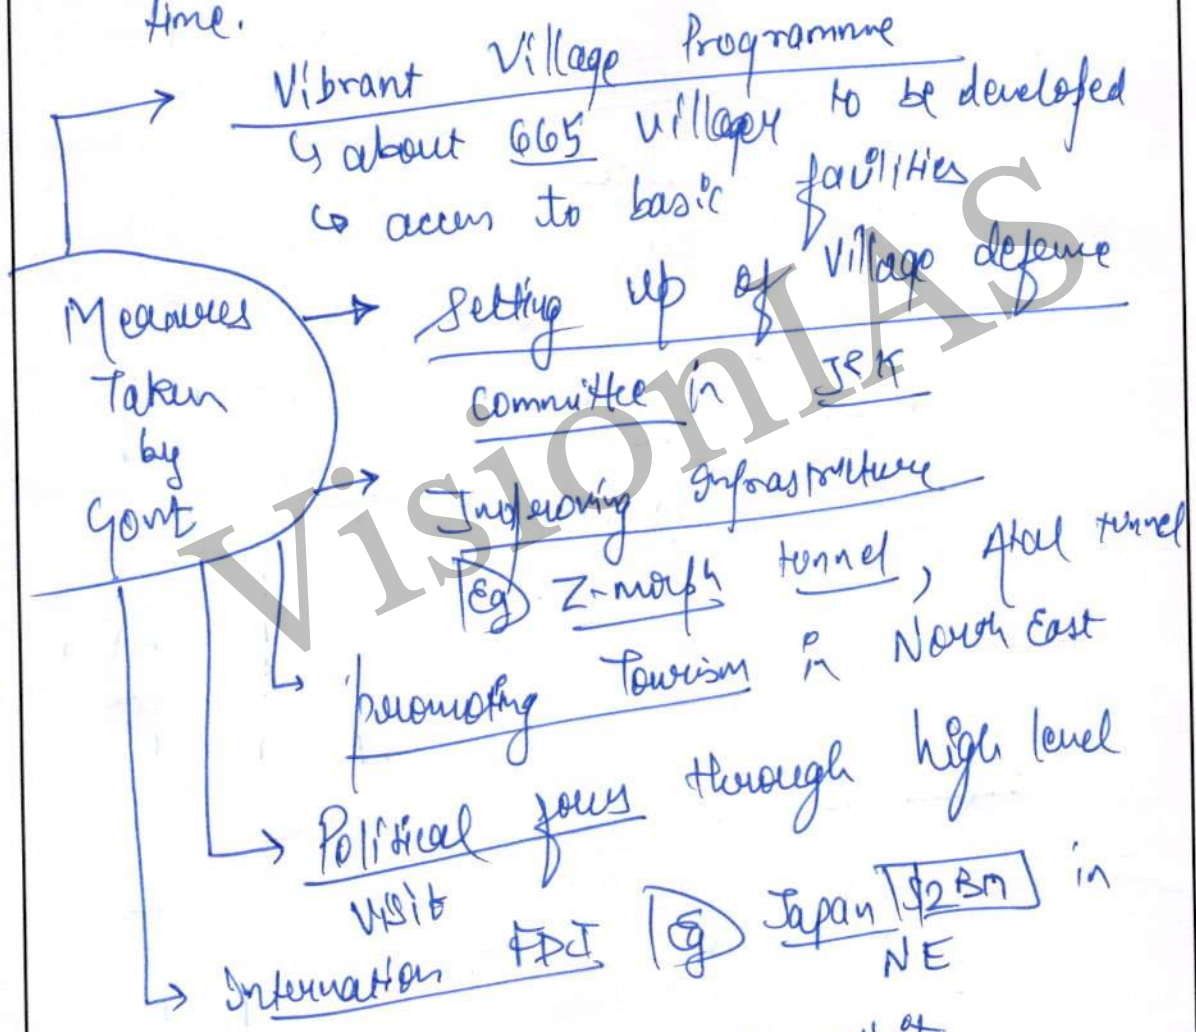 time.
Vibrant Village Programme
↳ about 665 villages to be developed
↳ access to basic facilities
Measures
Taken
by
Govt
Setting up of Village defence
committee in J&K
Improving Infrastructure
Eg Z-morph tunnel, Atal tunnel
promoting Tourism in North East
Political focus through high level
visit
Internation FDI Eg Japan $2Bn in
NE
VisionIAS